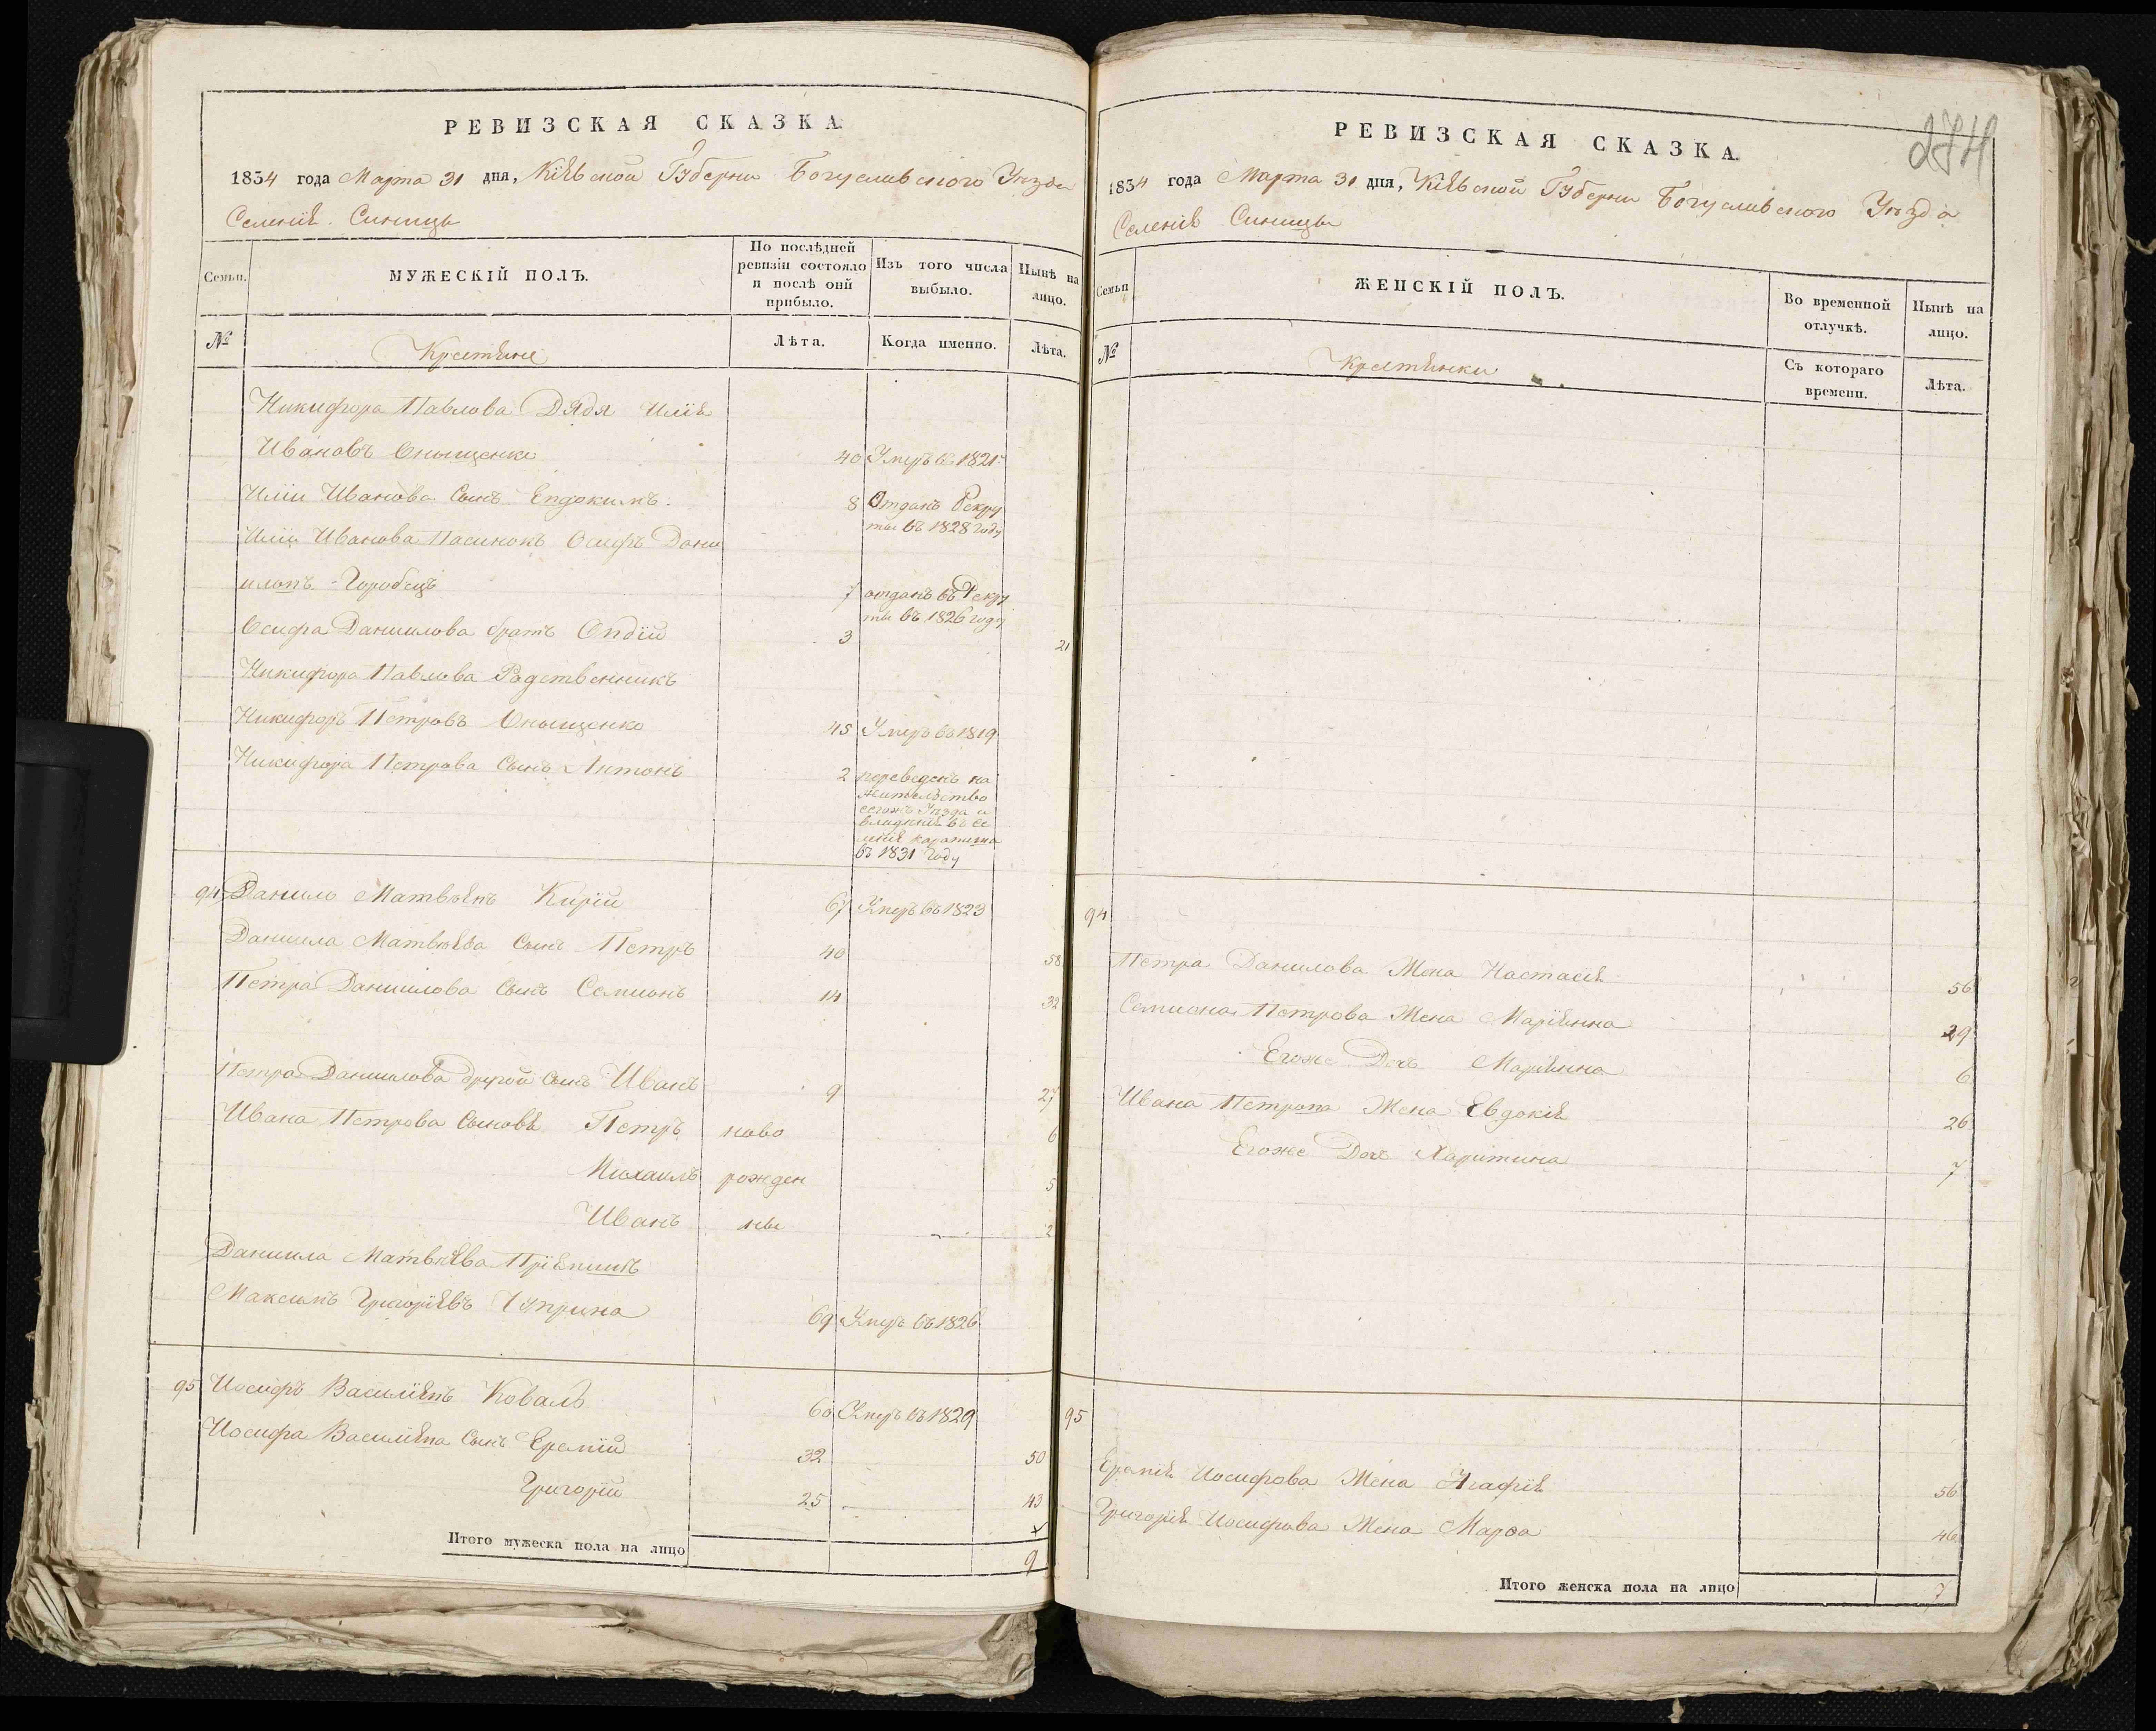 РЕВИЗСКАЯ СКАЗКА.
1834 года Марта 31 дня, Кіевской Губерни Богуславского Уезда
Селеніе Синицы
Семьи.
МУЖЕСКІЙ ПОЛЪ.
По послѣдней ревизіи состояло и послѣ оній прибыло.
Изъ того числа выбыло.
Нынѣ на лицо.
№
Крестяне
Лѣта.
Когда именно.
Лѣта.
Никифора Павлова Дядя Иліе
Ивановъ Онищенко 40 Умеръ въ 1821
Иліи Иванова Сынъ Евдокимъ 8 Отданъ Рекру
ты въ 1828 году
Иліи Иванова Пасинокъ Осифъ Дани
иловъ Горобецъ 7 отданъ въ Рекру
ты въ 1826 году
Осифа Даниилова братъ Овдій 3 21
Никифора Павлова Радственникъ
Никифоръ Петровъ Онищенко 45 Умеръ въ 1819
Никифора Петрова Сынъ Антонъ 2 переведенъ на
жительство
сегожъ Уезда и
владенія въ Се
леніе
въ 1831 Году
94 Данило Матвѣевъ Кирій 67 Умеръ въ 1823
Даниила Матвѣева Сынъ Петръ 40 58
Петра Даниилова Сынъ Семионъ 14 32
Петра Даниилова другой Сынъ Иванъ 9 27
Ивана Петрова Сынове Петръ ново 6
Михаилъ рожден 5
Иванъ ны 2
Даниила Матвѣева Пріемишъ
Максимъ Григоріевъ Чуприна 69 Умеръ въ 1826
95 Иосифъ Василіевъ Коваль 60 Умеръ въ 1829
Иосифа Василіева Сынъ Еремій 32 50
Григорій 25 43
Итого мужеска пола на лицо 9
274
РЕВИЗСКАЯ СКАЗКА.
1834 года Марта 31 дня, Кіевской Губерни Богуславского Уезда
Селеніе Синицы
Семьи
ЖЕНСКІЙ ПОЛЪ.
Во временной отлучкѣ.
Нынѣ на лицо.
№
Крестянки
Съ котораго времени.
Лѣта.
94
Петра Данилова Жена Настасіе 56
Семиона Петрова Жена Маріенна 29
Егоже Дочъ Маріенна 6
Ивана Петрова Жена Евдокіе 26
Егоже Дочъ Харитина 7
95
Еремія Иосифова Жена Агафіе 56
Григорія Иосифова Жена Марѳа 46
Итого женска пола на лицо 7